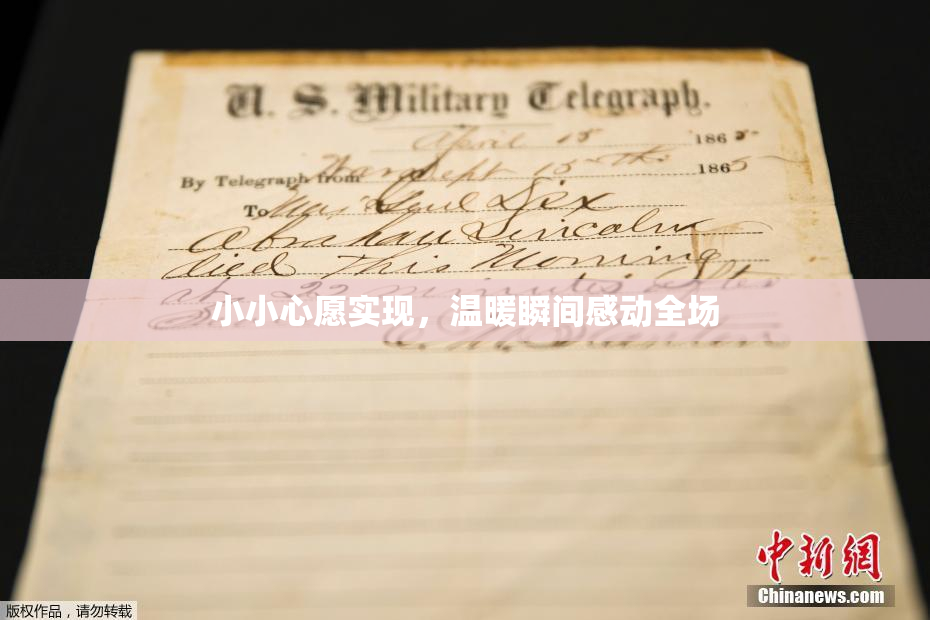 U. S. Military Telegraph.
April 15 1865
By Telegraph from War Dept 15th 1865
To Maj Genl Dix
Abraham Lincoln
died This Morning
at 22 minutes after
小小心愿实现，温暖瞬间感动全场
E. M. Stanton
中新网
Chinanews.com
版权作品，请勿转载